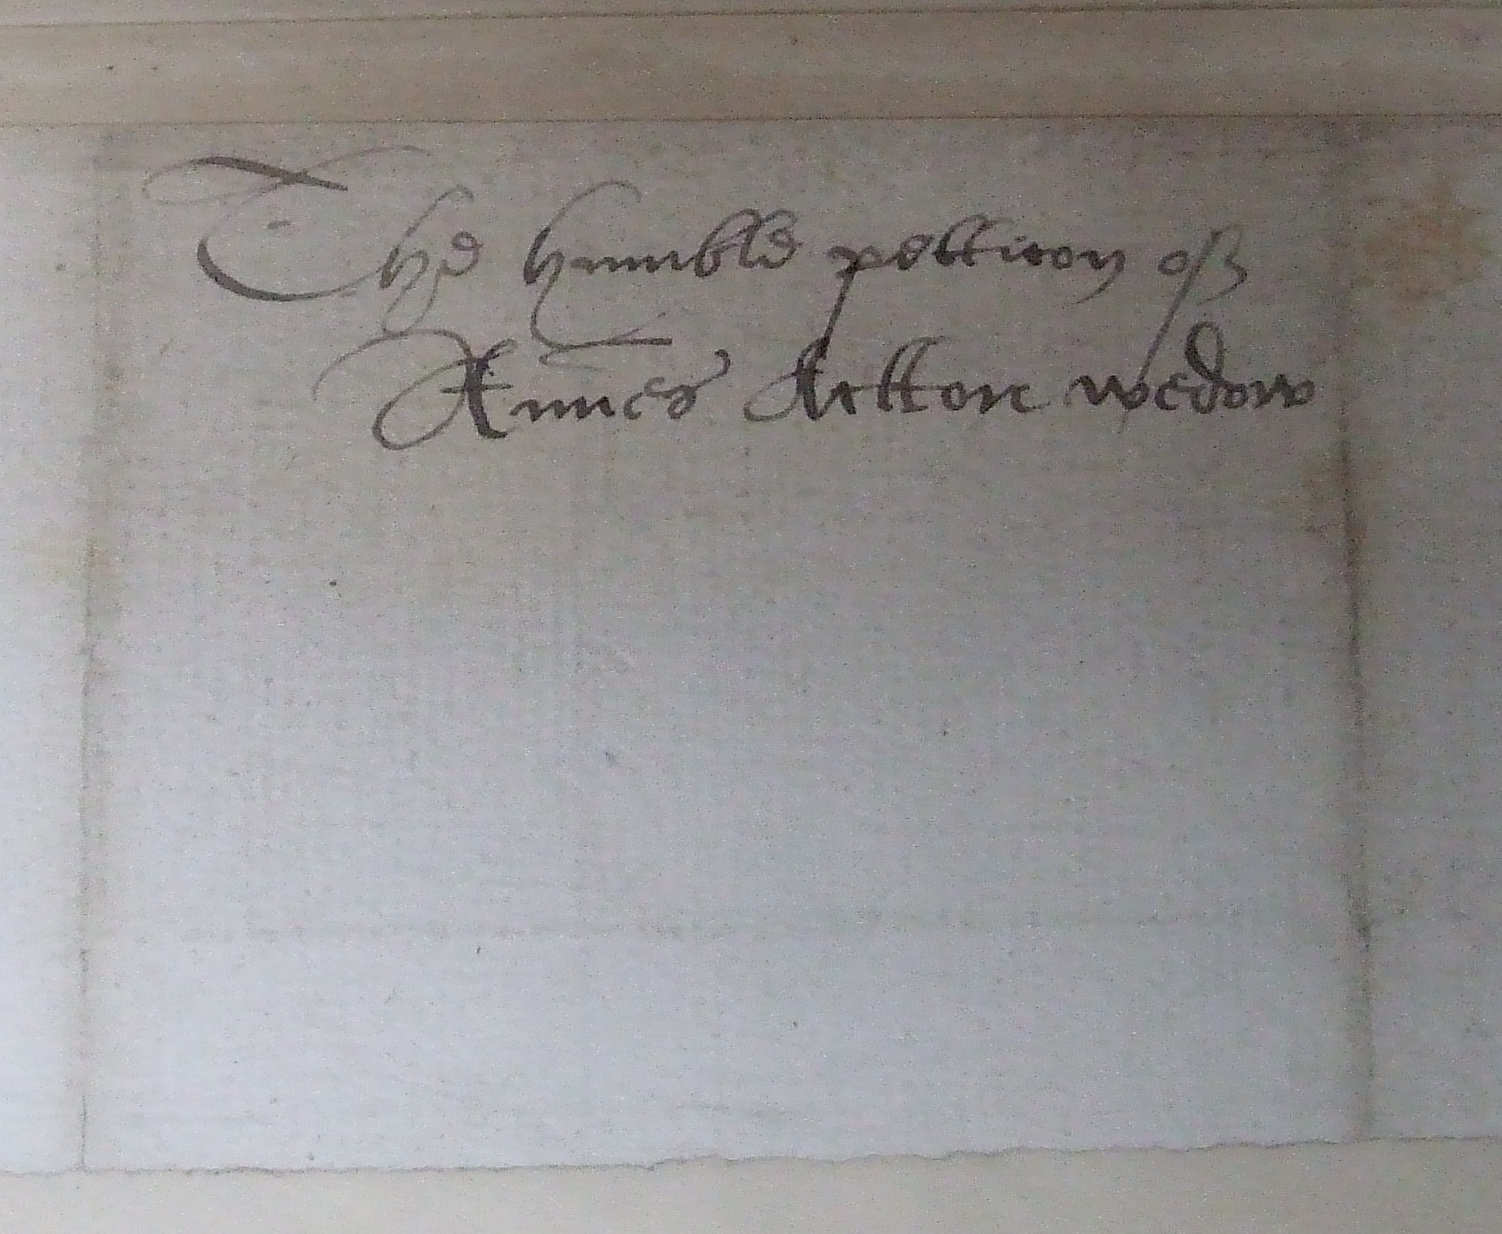 The humble petticon off
Annes Artton wedow